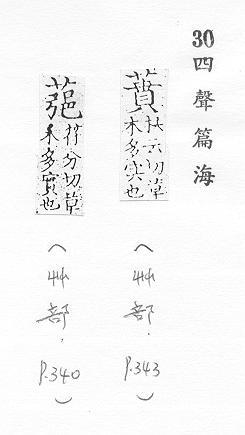 30四聲篇海
蕡
扶云切草
木多实也
（艸部，p.343）
符分切草
木多實也
（艸部，p.340）